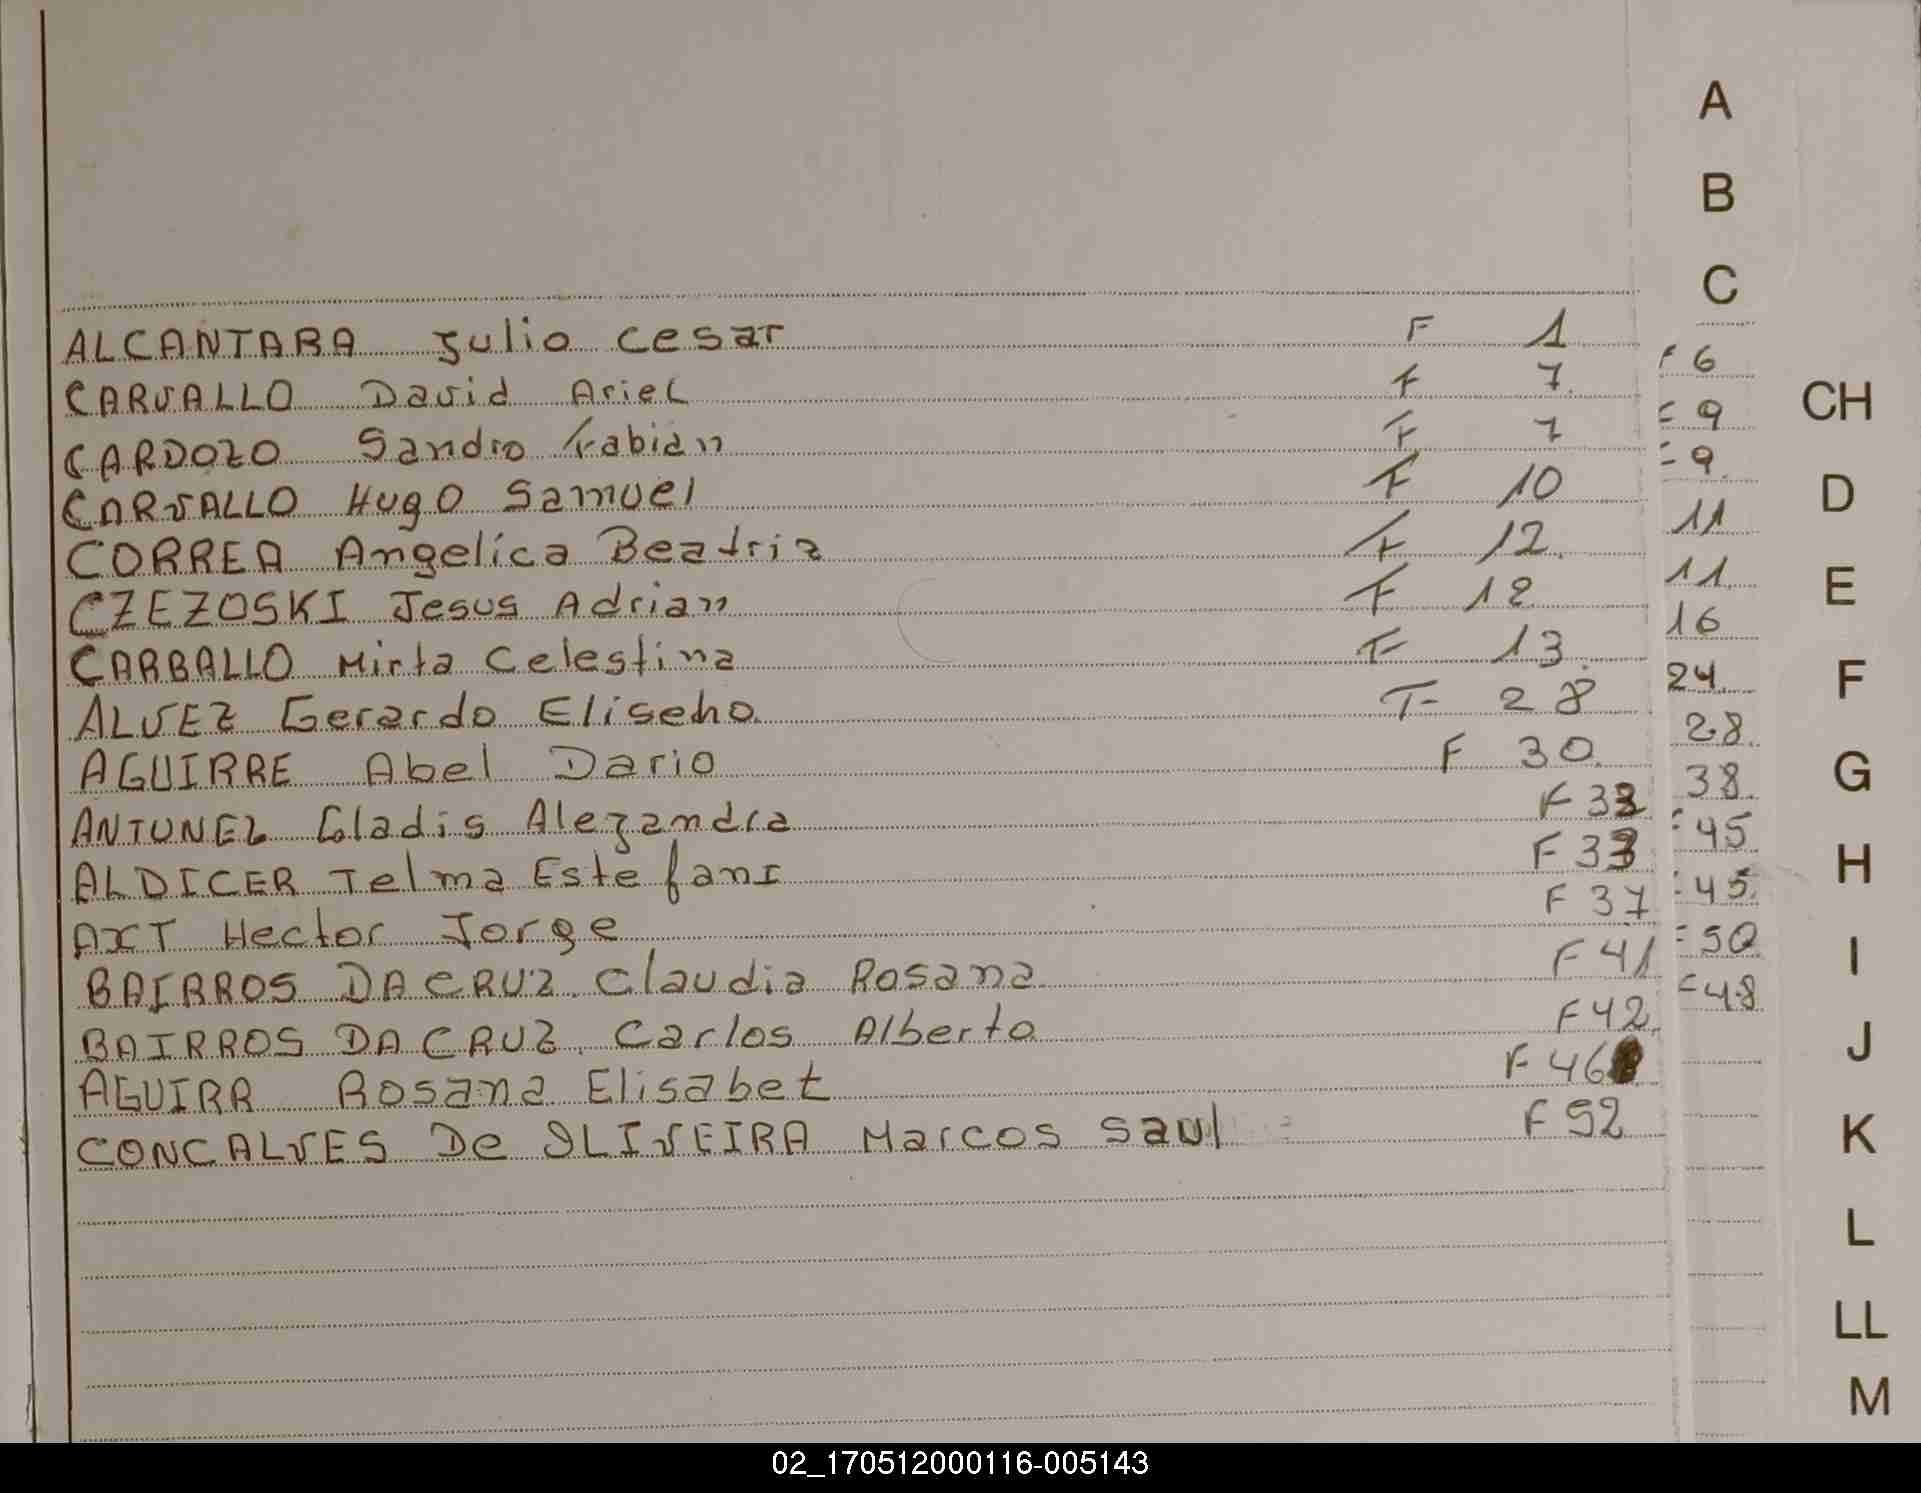 A
B
C
ALCANTARA Julio Cesar F 1
CARVALLO David Ariel F 7
CARDOZO Sandro Fabian F 7
CARVALLO Hugo Samuel F 10
CORREA Angelica Beatriz F 12
CZEZOSKI Jesus Adrian F 12
CARBALLO Mirta Celestina F 13
ALVEZ Gerardo Eliseho F 28
AGUIRRE Abel Dario F 30
ANTUNEZ Gladis Alezandra F 33
ALDICER Telma Estefani F 33
AXT Hector Jorge F 37
BAIRROS DA CRUZ Claudia Rosana F 41
BAIRROS DA CRUZ Carlos Alberto F 42
AGUIRR Rosana Elisabet F 46
CONCALVES De OLIVEIRA Marcos Saul F 52
F 6
F 9
F 9
11
11
16
24
28
38
F 45
F 45
F 50
F 48
CH
D
E
F
G
H
I
J
K
L
LL
M
02_170512000116-005143